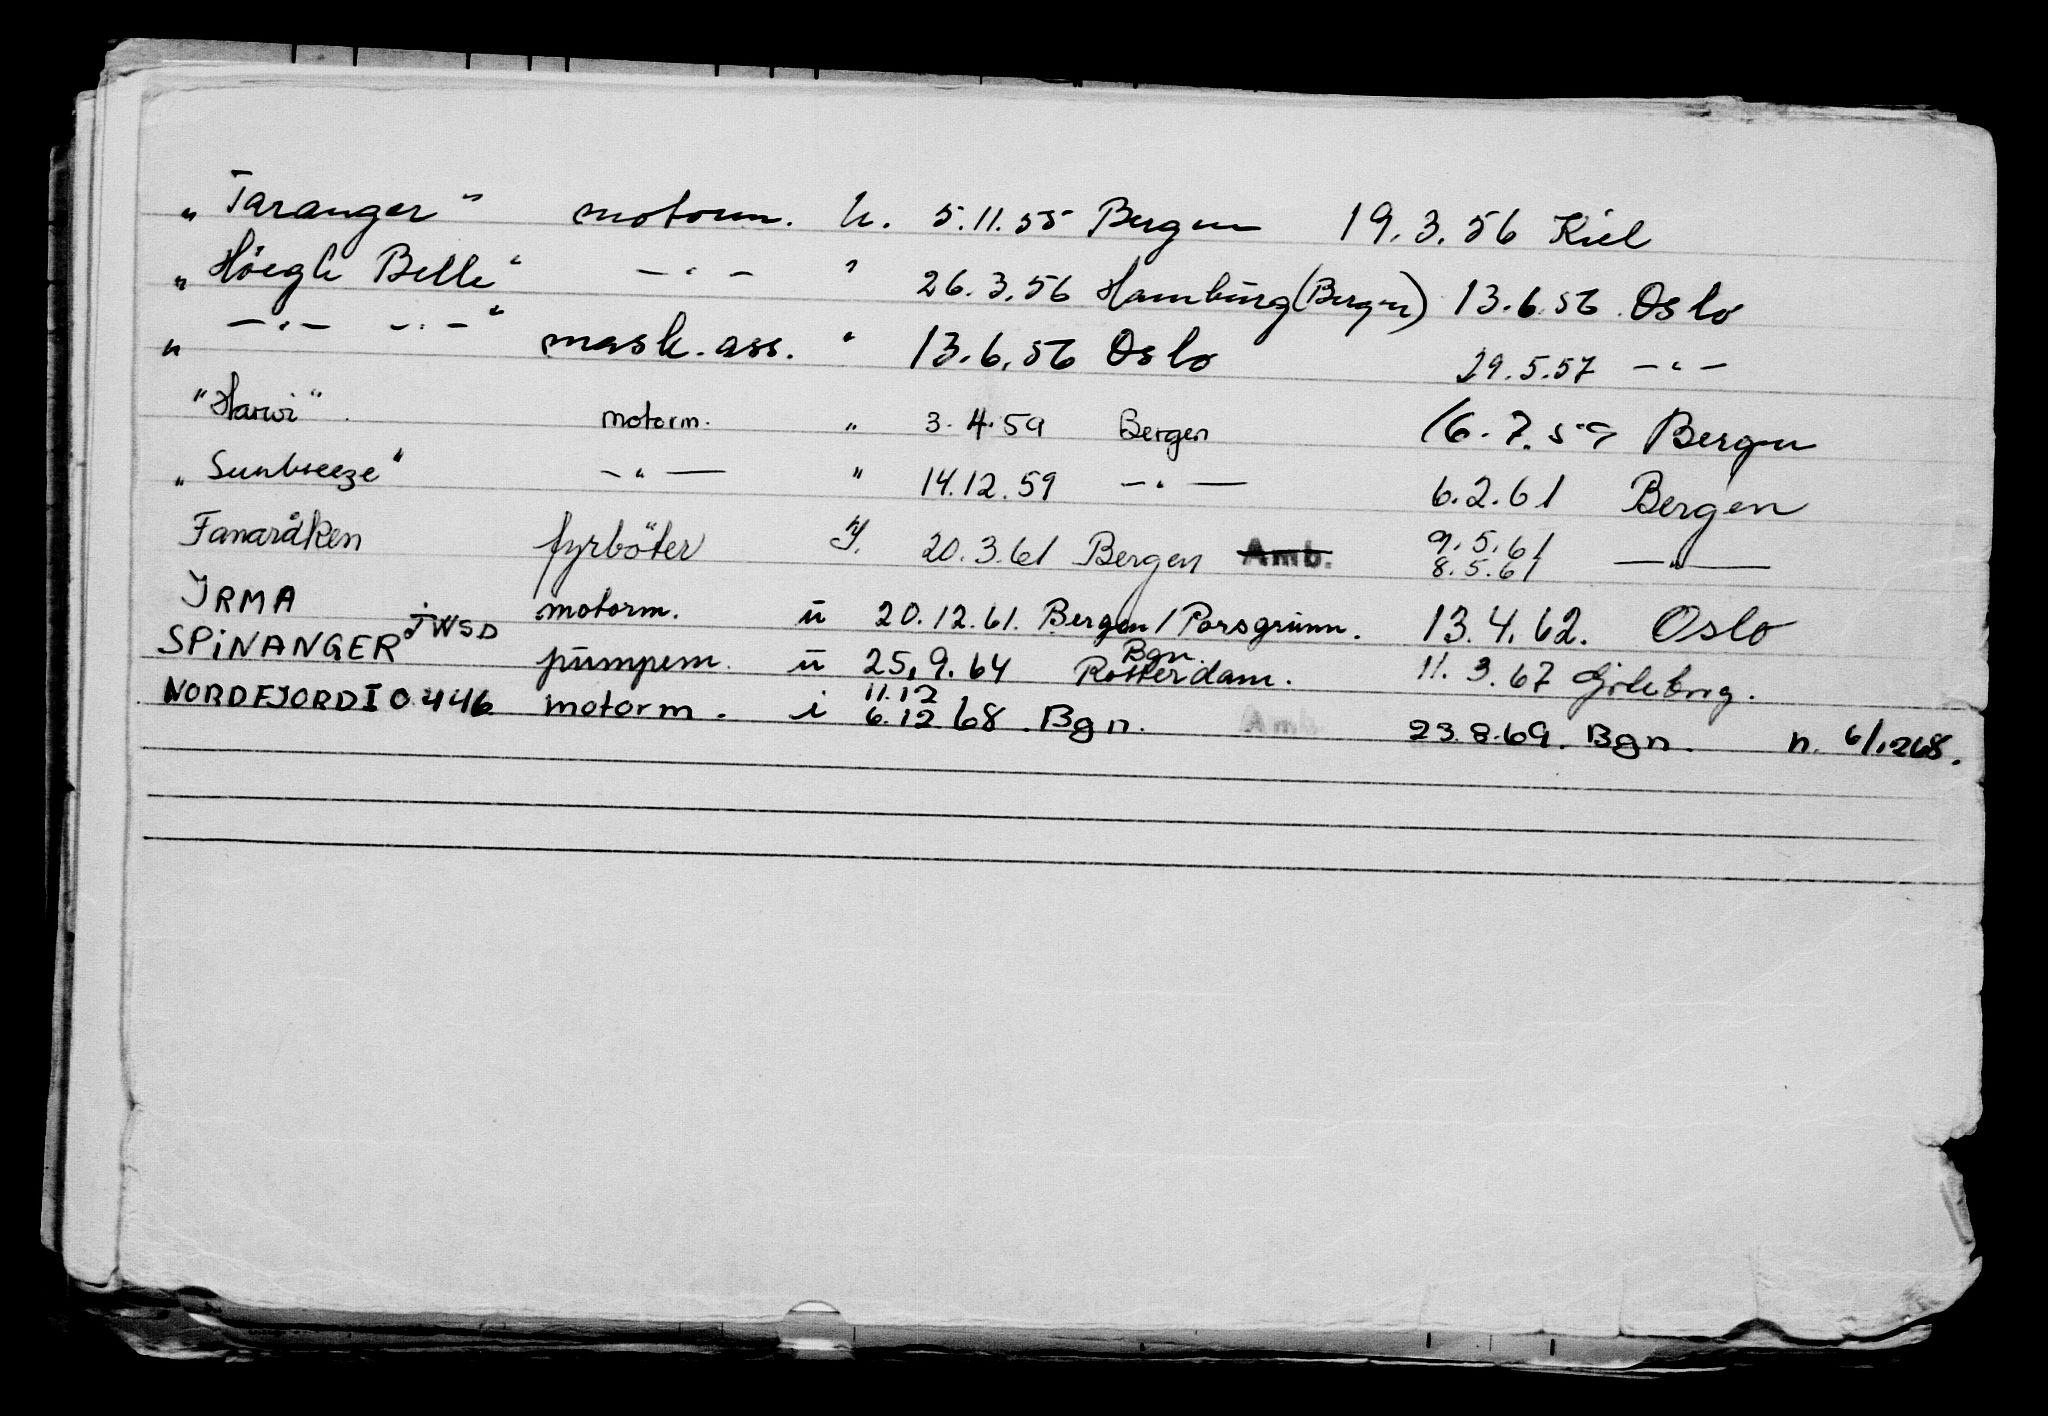 „Taranger" motorm. u. 5.11.55 Bergen 19.3.56 Kiel
„Höegh Belle" — " — " 26.3.56 Hamburg (Bergen) 13.6.56 Oslo
„ — " — — " — " mask. ass. " 13.6.56 Oslo 29.5.57 — " —
"Harwi" motorm. " 3.4.59 Bergen 16.7.59 Bergen
„Sunbreeze" — " — " 14.12.59 — " — 6.2.61 Bergen
Fanaråken fyrböter I. 20.3.61 Bergen Amb. 9.5.61 8.5.61 — " —
IRMA motorm. u 20.12.61. Bergen / Porsgrunn. 13.4.62. Oslo
SPINANGER JWSD pumpem. u 25.9.64 Bgn. Rotterdam. 11.3.67 Göteborg.
NORDFJORD I O 446 motorm. i 11.12 6.12 68. Bgn. Amb. 23.8.69. Bgn. n. 6/1268.